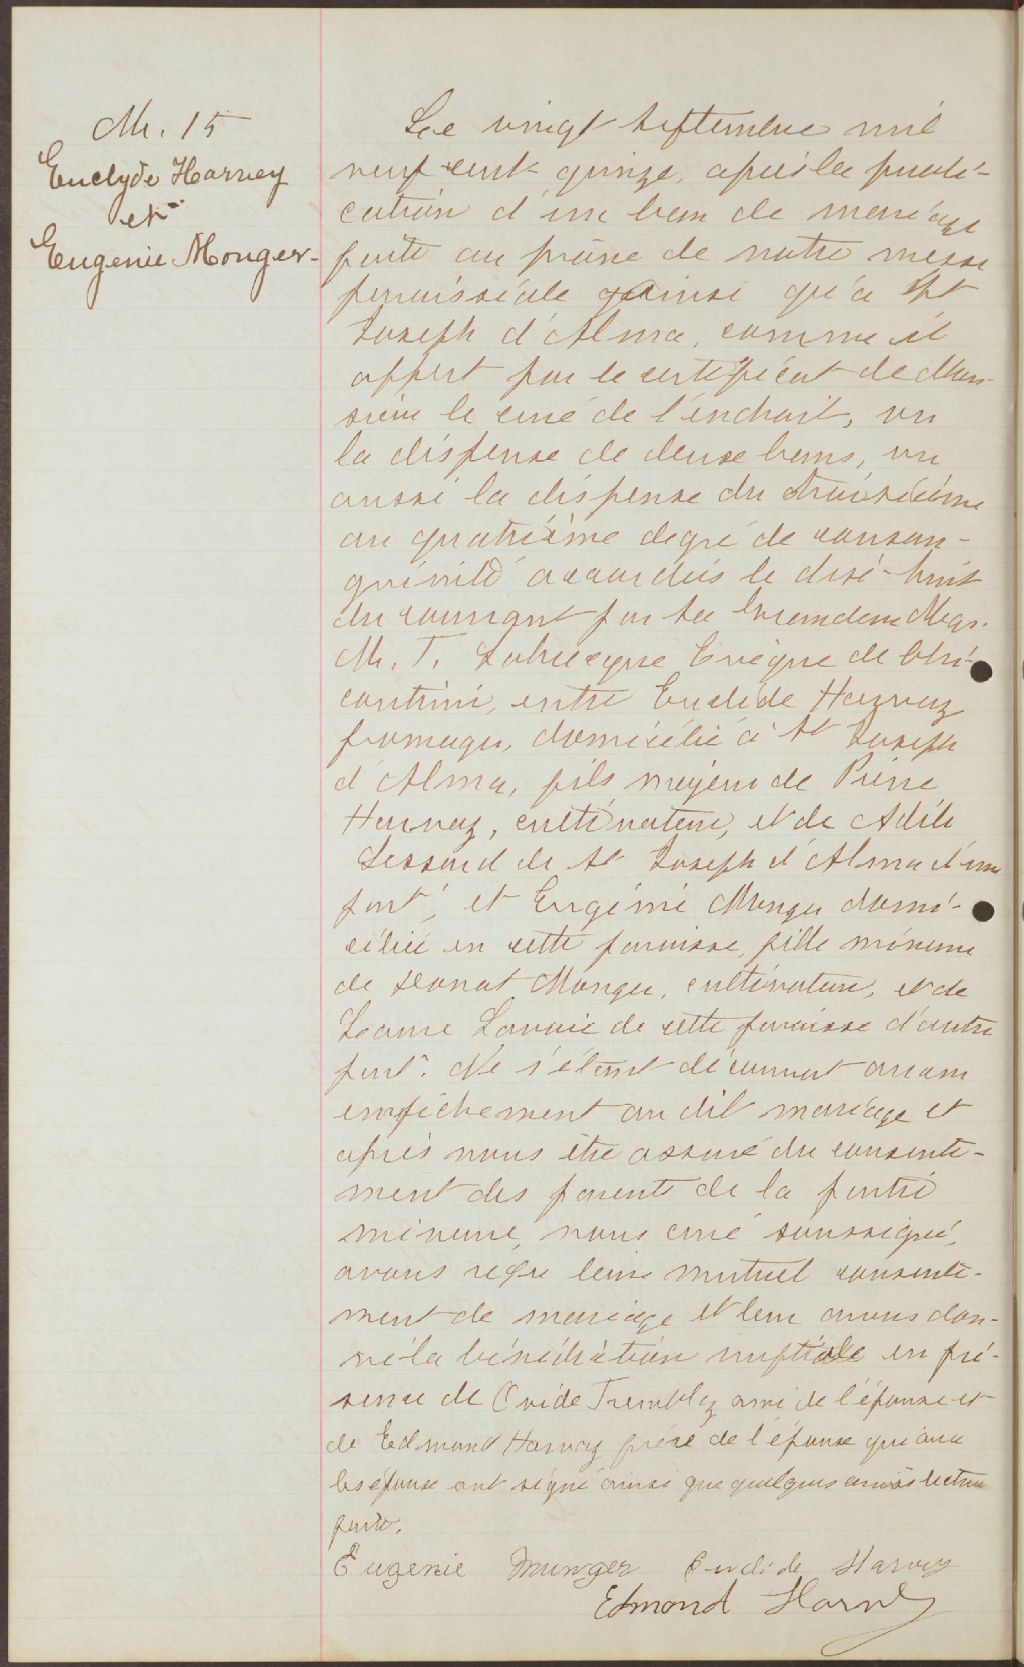 M. 15
Euclyde Harvey
et
Eugenie Monger
Le vingt septembre mil
neuf cent quinze, après la publi-
cation d'un ban de mariage
faite au prône de notre messe
paroissiale ainsi qu'à St
Joseph d'Alma, comme il
appert par le certificat de Mon-
sieur le curé de l'endroit, vu
la dispense de deux bans, vu
aussi la dispense du troisième
au quatrième degré de consan-
guinité accordés le dix-huit
du courant par Sa Grandeur Mgr.
M. T. Labrecque Evêque de Chi-
coutimi, entre Euclide Harvay
fromager, domicilié à St Joseph
d'Alma, fils majeur de Pierre
Harvay, cultivateur, et de Adèle
Lessard de St Joseph d'Alma d'une
part, et Eugénie Monger domi-
ciliée en cette paroisse, fille mineure
de Donat Monger, cultivateur, et de
Lavoie de cette paroisse d'autre
part. Ne s'étant découvert aucun
empêchement au dit mariage et
après nous être assuré du consente-
ment des parents de la partie
mineure, nous curé soussigné,
avons reçu leur mutuel consente-
ment de mariage et leur avons don-
né la bénédiction nuptiale en pré-
sence de Ovide Tremblay ami de l'épouse et
de Edmond Harvay frère de l'époux qui avec
les époux ont signé ainsi que quelques amis lecture
faite.
Eugenie Munger Euclide Harvey
Edmond Harvey